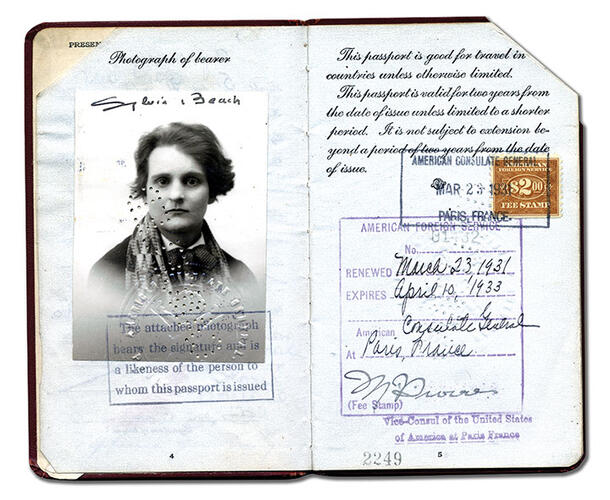 PRESEN
Photograph of bearer
Sylvia Beach
The attached photograph
bears the signature and is
a likeness of the person to
whom this passport is issued
4
This passport is good for travel in
countries unless otherwise limited.
This passport is valid for two years from
the date of issue unless limited to a shorter
period. It is not subject to extension be-
yond a period of two years from the date
of issue.
AMERICAN CONSULATE GENERAL
MAR 23 1931
PARIS, FRANCE.
FOREIGN SERVICE
$2.00
FEE STAMP
AMERICAN FOREIGN SERVICE
No.
RENEWED March 23, 1931
EXPIRES April 10, 1933
American Consulate General
At Paris, France
(Fee Stamp)
Vice-Consul of the United States
of America at Paris France
2249
5